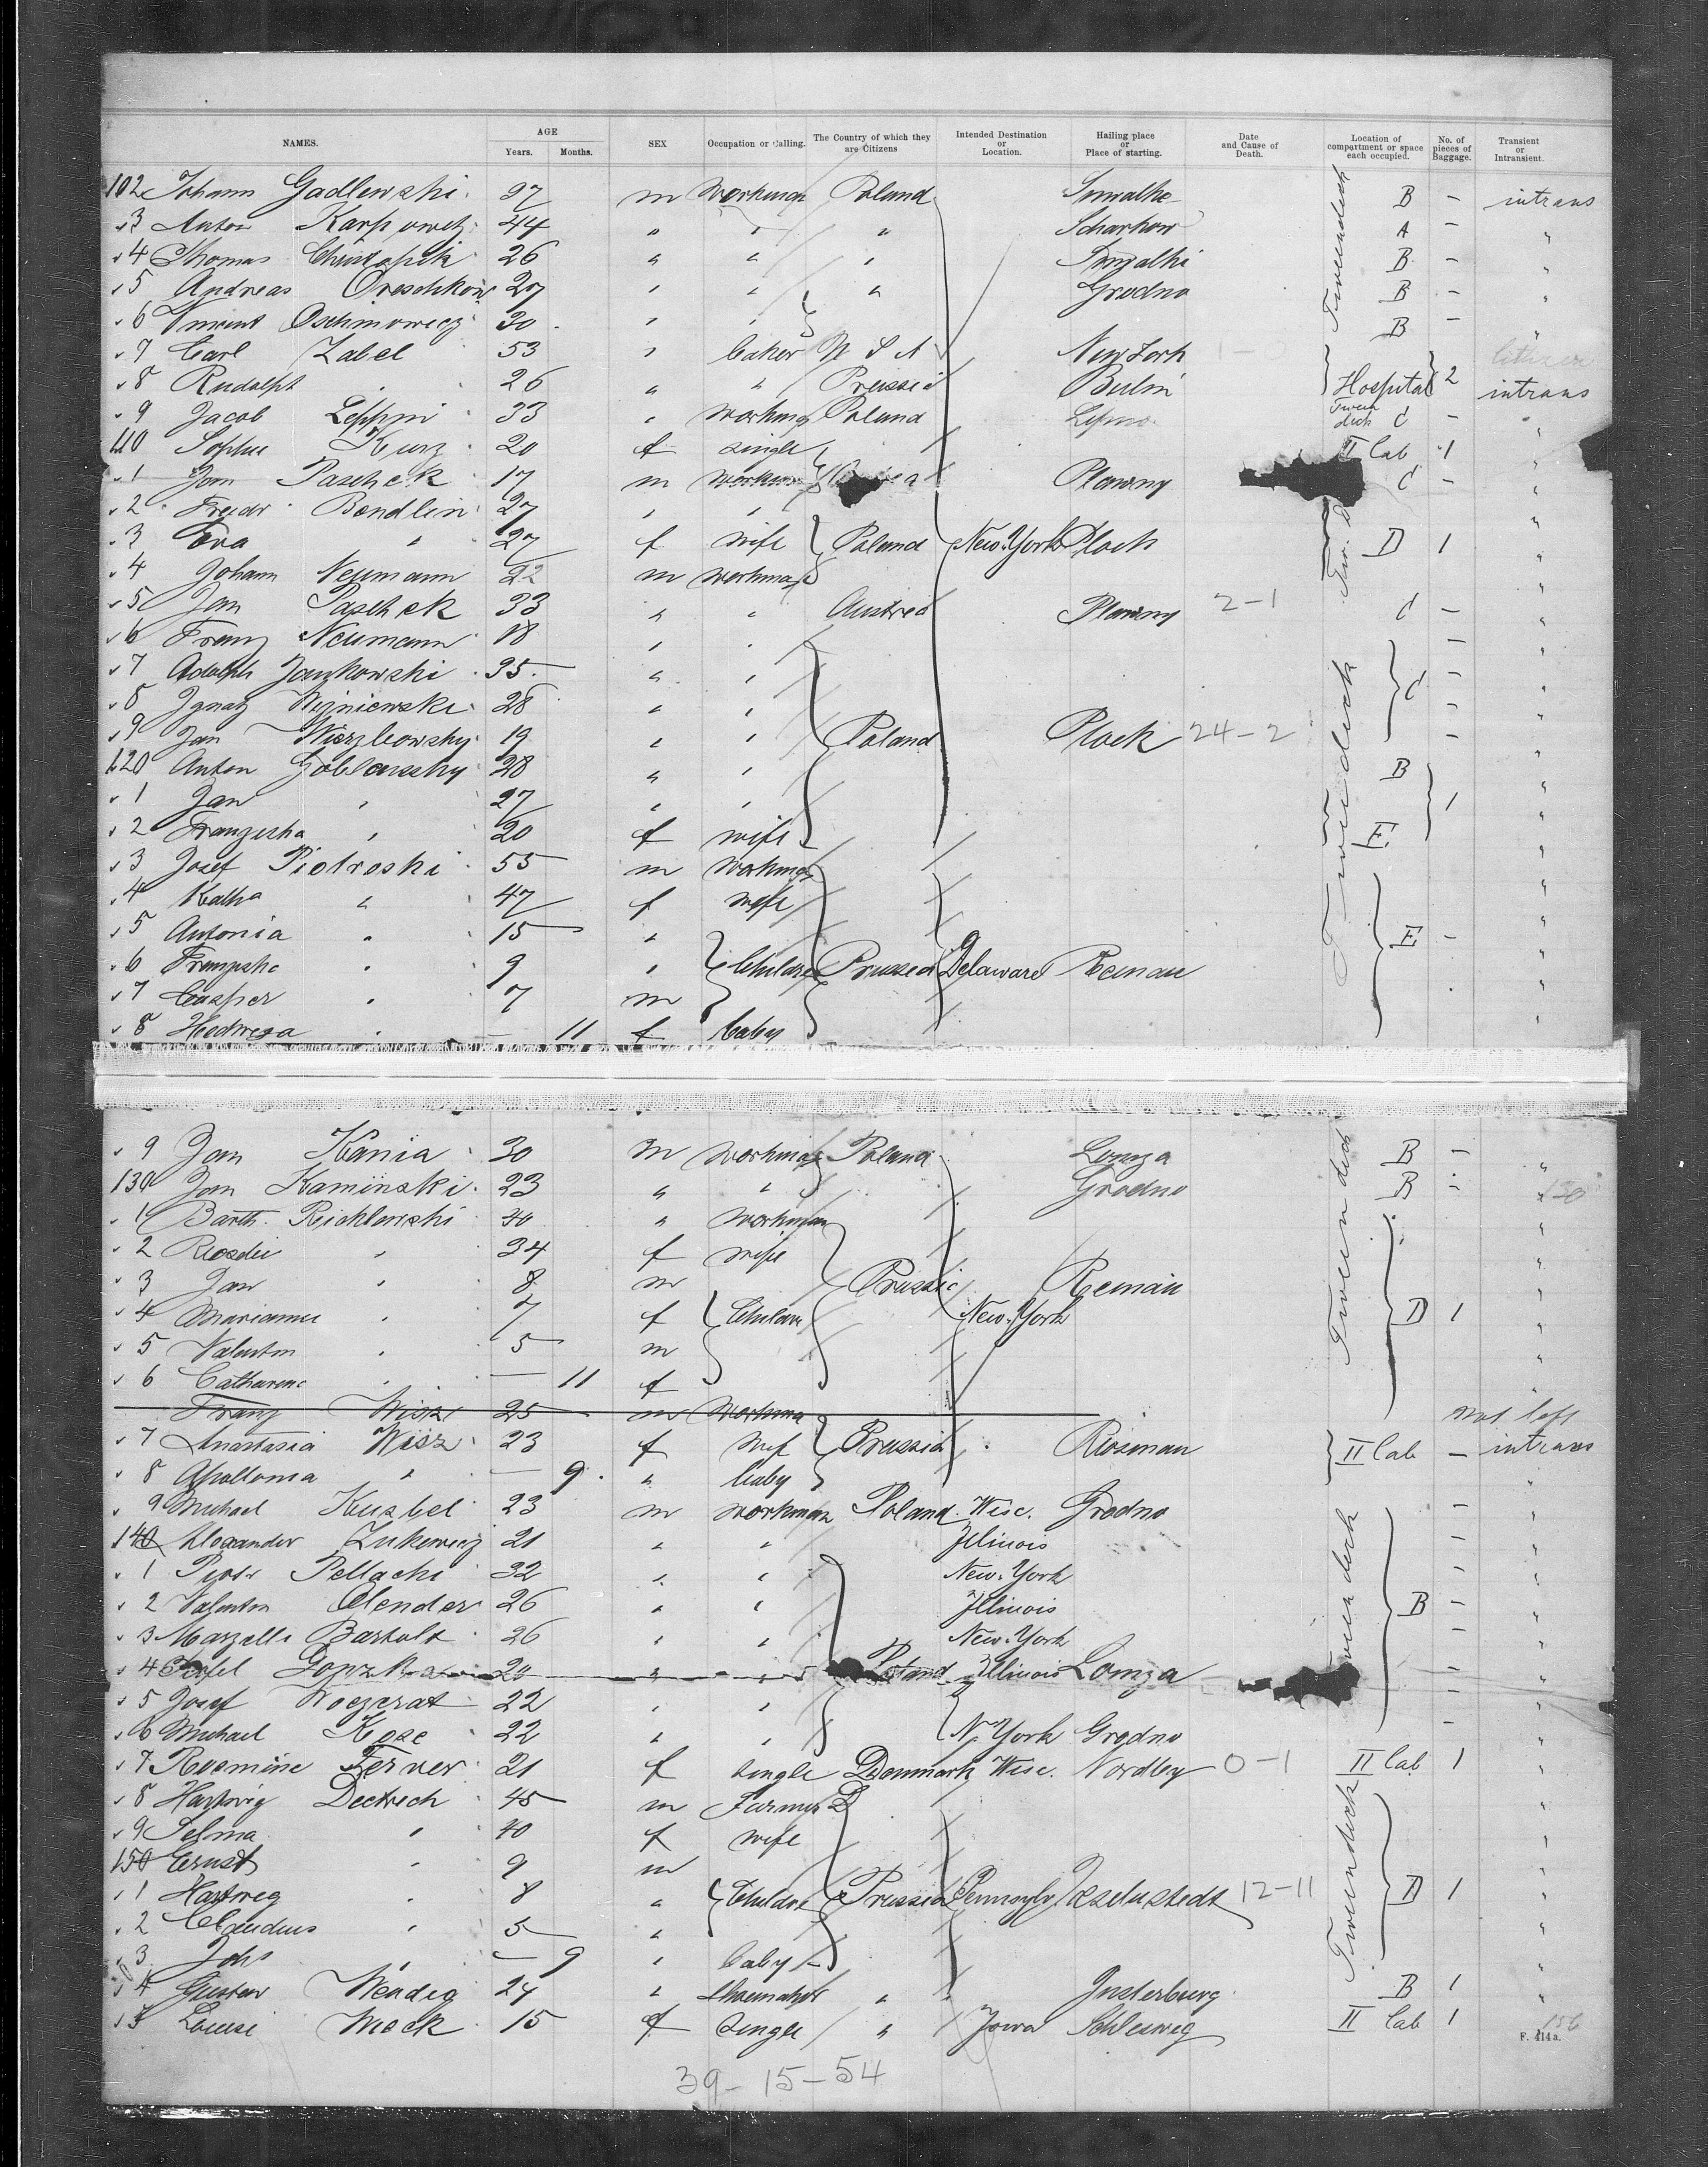 NAMES. AGE Years. Months. SEX Occupation or Calling. The Country of which they are Citizens Intended Destination or Location. Hailing place or Place of starting. Date and Cause of Death. Location of compartment or space each occupied. No. of pieces of Baggage. Transient or Intransient.
102 Johann Gadlewski 27 m Workman Poland B — intrans
3 Anton Karpowetz 44 " " " Scharkow A — "
4 Thomas 26 " " " B — "
5 Andreas Oreschkow 27 " " " Grodno B — "
6 Vincent Oschmowicz 30 " " B — "
7 Carl Zabel 53 " baker U S A New York
8 Rudolph " 26 " " Prussia Berlin Hospital 2 intrans
9 Jacob Leppni 33 " workman Poland Lipno Tween deck C — "
110 Sophie Kurz 20 f single II Cab 1 "
1 Jan Paschek 17 m workman Plawny C — "
2 Friedr Bondlin 27 " " "
3 Eva " 27 f wife Poland New-York Plock D 1 "
4 Johann Neumann 22 m workman "
5 Jan Paschek 33 " " Austria Plawny 2-1 C — "
6 Franz Neumann 18 " " — "
7 Adolph Jankowski 35 " " C — "
8 Ignatz Wisniewski 28 " " — "
9 Jan Wierzbowsky 19 " " Poland Plock 24-2 — "
120 Anton Goblewsky 28 " " B "
1 Jan " 27 " " 1 "
2 Franziska " 20 f wife E "
3 Josef Piotroski 55 m workman "
4 Katha " 47 f wife "
5 Antonia " 15 " E — "
6 Franziska " 9 " Children Prussia Delaware "
7 Casper " 7 m "
8 Hedwiga " — 11 f baby "
9 Jan Kania 30 m workman Poland Lomza B — "
130 Jan Kaminski 23 " " Grodno B — "
1 Barth. Richlewski 40 " workman "
2 Rosalie " 34 f wife "
3 Jan " 8 m Prussia "
4 Marianne " 7 f Children New-York D 1 "
5 Valentin " 5 m "
6 Catharine " — 11 f "
Franz Wisz 25 m workman not left
7 Anastasia Wisz 23 f wife Prussia II Cab — intrans
8 Apollonia " — 9 " baby "
9 Michael Kusbel 23 m workman Poland Wisc. Grodno — "
140 Alexander Zukewicz 21 " " Illinois — "
1 Piotr Pellachi 32 " " New-York — "
2 Valentin Olender 26 " " Illinois B — "
3 Marzelli Bartold 26 " " New-York — "
4 Gopzka " " Poland Illinois Lomza — "
5 Josef Woczrat 22 " " — "
6 Michael Kose 22 " " N. York Grodno — "
7 Rosmine Ferver 21 f single Denmark Wisc. Nordby 0-1 II Cab 1 "
8 Hartwig Dectrech 45 m Farmer "
9 Selma " 40 f wife "
150 Ernst " 9 m "
1 Hartwig " 8 " Children Prussia Pennsylv. 12-11 D 1 "
2 Claudius " 5 " "
3 Johs " — 9 " baby "
4 Gustav Wendig 24 " " Insterburg B 1 "
5 Louise Mack 15 f single " Iowa Schleswig II Cab 1 156
F. 414a.
39-15-54
Tweendeck
Tweendeck
Tween deck
Tween deck
Tweendeck